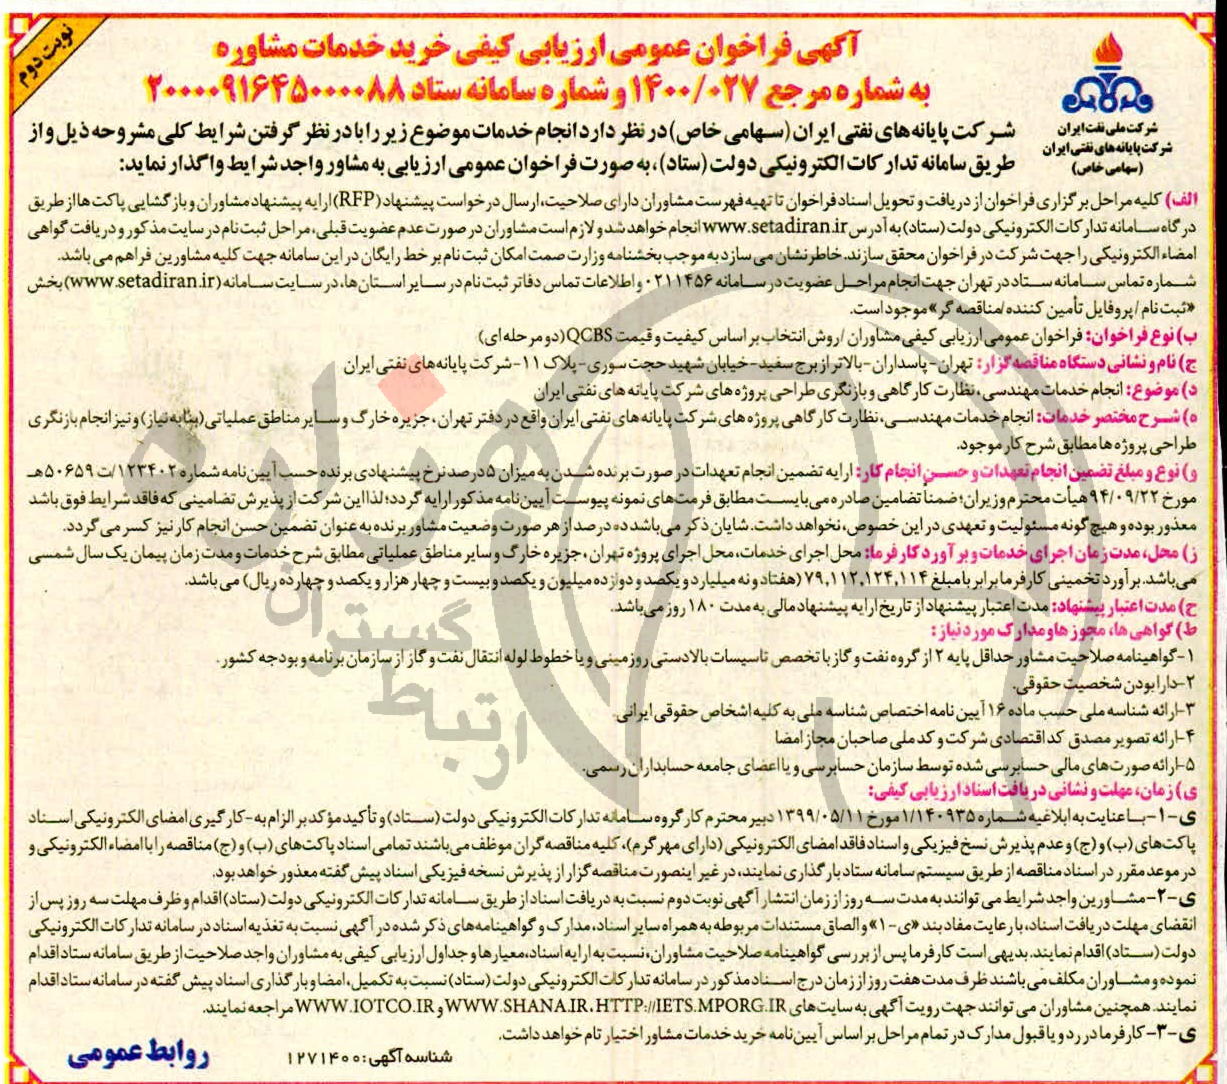 نوبت دوم
آگهی فراخوان عمومی ارزیابی کیفی خرید خدمات مشاوره
به شماره مرجع ۱۴۰۰/۰۲۷ و شماره سامانه ستاد ۲۰۰۰۰۹۱۶۴۵۰۰۰۰۸۸
شرکت ملی نفت ایران
شرکت پایانه‌های نفتی ایران
(سهامی خاص)
شرکت پایانه‌های نفتی ایران (سهامی خاص) در نظر دارد انجام خدمات موضوع زیر را با در نظر گرفتن شرایط کلی مشروحه ذیل و از
طریق سامانه تدارکات الکترونیکی دولت (ستاد)، به صورت فراخوان عمومی ارزیابی به مشاور واجد شرایط واگذار نماید:
الف) کلیه مراحل برگزاری فراخوان از دریافت و تحویل اسناد فراخوان تا تهیه فهرست مشاوران دارای صلاحیت، ارسال درخواست پیشنهاد (RFP) ارایه پیشنهاد مشاوران و بازگشایی پاکت‌ها از طریق
درگاه سامانه تدارکات الکترونیکی دولت (ستاد) به آدرس www.setadiran.ir انجام خواهد شد و لازم است مشاوران در صورت عدم عضویت قبلی، مراحل ثبت نام در سایت مذکور و دریافت گواهی
امضاء الکترونیکی را جهت شرکت در فراخوان محقق سازند. خاطرنشان می سازد به موجب بخشنامه وزارت صمت امکان ثبت نام بر خط رایگان در این سامانه جهت کلیه مشاورین فراهم می باشد.
شماره تماس سامانه ستاد در تهران جهت انجام مراحل عضویت در سامانه ۰۲۱۱۴۵۶ و اطلاعات تماس دفاتر ثبت نام در سایر استان‌ها، در سایت سامانه (www.setadiran.ir) بخش
«ثبت نام / پروفایل تأمین کننده / مناقصه گر» موجود است.
ب) نوع فراخوان: فراخوان عمومی ارزیابی کیفی مشاوران / روش انتخاب بر اساس کیفیت و قیمت QCBS (دو مرحله‌ای)
ج) نام و نشانی دستگاه مناقصه گزار: تهران - پاسداران - بالاتر از برج سفید - خیابان شهید حجت سوری - پلاک ۱۱ - شرکت پایانه‌های نفتی ایران
د) موضوع: انجام خدمات مهندسی، نظارت کارگاهی و بازنگری طراحی پروژه های شرکت پایانه های نفتی ایران
ه) شرح مختصر خدمات: انجام خدمات مهندسی، نظارت کارگاهی پروژه های شرکت پایانه های نفتی ایران واقع در دفتر تهران، جزیره خارگ و سایر مناطق عملیاتی (بنا به نیاز) و نیز انجام بازنگری
طراحی پروژه ها مطابق شرح کار موجود.
و) نوع و مبلغ تضمین انجام تعهدات و حسن انجام کار: ارایه تضمین انجام تعهدات در صورت برنده شدن به میزان ۵ درصد نرخ پیشنهادی برنده حسب آیین‌نامه شماره ۱۲۳۴۰۲/ت ۵۰۶۵۹هـ
مورخ ۹۴/۰۹/۲۲ هیأت محترم وزیران؛ ضمناً تضامین صادره می‌بایست مطابق فرمت‌های نمونه پیوست آیین‌نامه مذکور ارایه گردد؛ لذا این شرکت از پذیرش تضامینی که فاقد شرایط فوق باشد
معذور بوده و هیچ گونه مسئولیت و تعهدی در این خصوص، نخواهد داشت. شایان ذکر می‌باشد ده درصد از هر صورت وضعیت مشاور برنده به عنوان تضمین حسن انجام کار نیز کسر می گردد.
ز) محل، مدت زمان اجرای خدمات و برآورد کارفرما: محل اجرای خدمات، محل اجرای پروژه تهران، جزیره خارگ و سایر مناطق عملیاتی مطابق شرح خدمات و مدت زمان پیمان یک سال شمسی
می‌باشد. برآورد تخمینی کارفرما برابر با مبلغ ۷۹,۱۱۲,۱۲۴,۱۱۴ (هفتاد و نه میلیارد و یکصد و دوازده میلیون و یکصد و بیست و چهار هزار و یکصد و چهارده ریال) می باشد.
ح) مدت اعتبار پیشنهاد: مدت اعتبار پیشنهاد از تاریخ ارایه پیشنهاد مالی به مدت ۱۸۰ روز می‌باشد.
ط) گواهی ها، مجوزها و مدارک مورد نیاز:
۱-گواهینامه صلاحیت مشاور حداقل پایه ۲ از گروه نفت و گاز با تخصص تاسیسات بالادستی رو زمینی و یا خطوط لوله انتقال نفت و گاز از سازمان برنامه و بودجه کشور.
۲-دارا بودن شخصیت حقوقی.
۳-ارائه شناسه ملی حسب ماده ۱۶ آیین نامه اختصاص شناسه ملی به کلیه اشخاص حقوقی ایرانی.
۴-ارائه تصویر مصدق کد اقتصادی شرکت و کد ملی صاحبان مجاز امضا
۵-ارائه صورت‌های مالی حسابرسی شده توسط سازمان حسابرسی و یا اعضای جامعه حسابداران رسمی.
ی) زمان، مهلت و نشانی دریافت اسناد ارزیابی کیفی:
ی-۱- با عنایت به ابلاغیه شماره ۱/۱۴۰۹۳۵ مورخ ۱۳۹۹/۰۵/۱۱ دبیر محترم کارگروه سامانه تدارکات الکترونیکی دولت (ستاد) و تأکید مؤکد بر الزام به-کارگیری امضای الکترونیکی اسناد
پاکت‌های (ب) و (ج) و عدم پذیرش نسخ فیزیکی و اسناد فاقد امضای الکترونیکی (دارای مهر گرم)، کلیه مناقصه گران موظف می‌باشند تمامی اسناد پاکت‌های (ب) و (ج) مناقصه را با امضاء الکترونیکی و
در موعد مقرر در اسناد مناقصه از طریق سیستم سامانه ستاد بارگذاری نمایند، در غیر اینصورت مناقصه گزار از پذیرش نسخه فیزیکی اسناد پیش گفته معذور خواهد بود.
ی-۲- مشاورین واجد شرایط می توانند به مدت سه روز از زمان انتشار آگهی نوبت دوم نسبت به دریافت اسناد از طریق سامانه تدارکات الکترونیکی دولت (ستاد) اقدام و ظرف مهلت سه روز پس از
انقضای مهلت دریافت اسناد، با رعایت مفاد بند «ی-۱» و الصاق مستندات مربوطه به همراه سایر اسناد، مدارک و گواهینامه‌های ذکر شده در آگهی نسبت به تغذیه اسناد در سامانه تدارکات الکترونیکی
دولت (ستاد) اقدام نمایند. بدیهی است کارفرما پس از بررسی گواهینامه صلاحیت مشاوران، نسبت به ارایه اسناد، معیارها و جداول ارزیابی کیفی به مشاوران واجد صلاحیت از طریق سامانه ستاد اقدام
نموده و مشاوران مکلف می باشند ظرف مدت هفت روز از زمان درج اسناد مذکور در سامانه تدارکات الکترونیکی دولت (ستاد) نسبت به تکمیل، امضا و بارگذاری اسناد پیش گفته در سامانه ستاد اقدام
نمایند. همچنین مشاوران می توانند جهت رویت آگهی به سایت‌های WWW.SHANA.IR، HTTP://IETS.MPORG.IR و WWW.IOTCO.IR مراجعه نمایند.
ی-۳- کارفرما در رد و یا قبول مدارک در تمام مراحل بر اساس آیین‌نامه خرید خدمات مشاور اختیار تام خواهد داشت.
شناسه آگهی: ۱۲۷۱۴۰۰
روابط عمومی
هزاره
ارتباط گستران